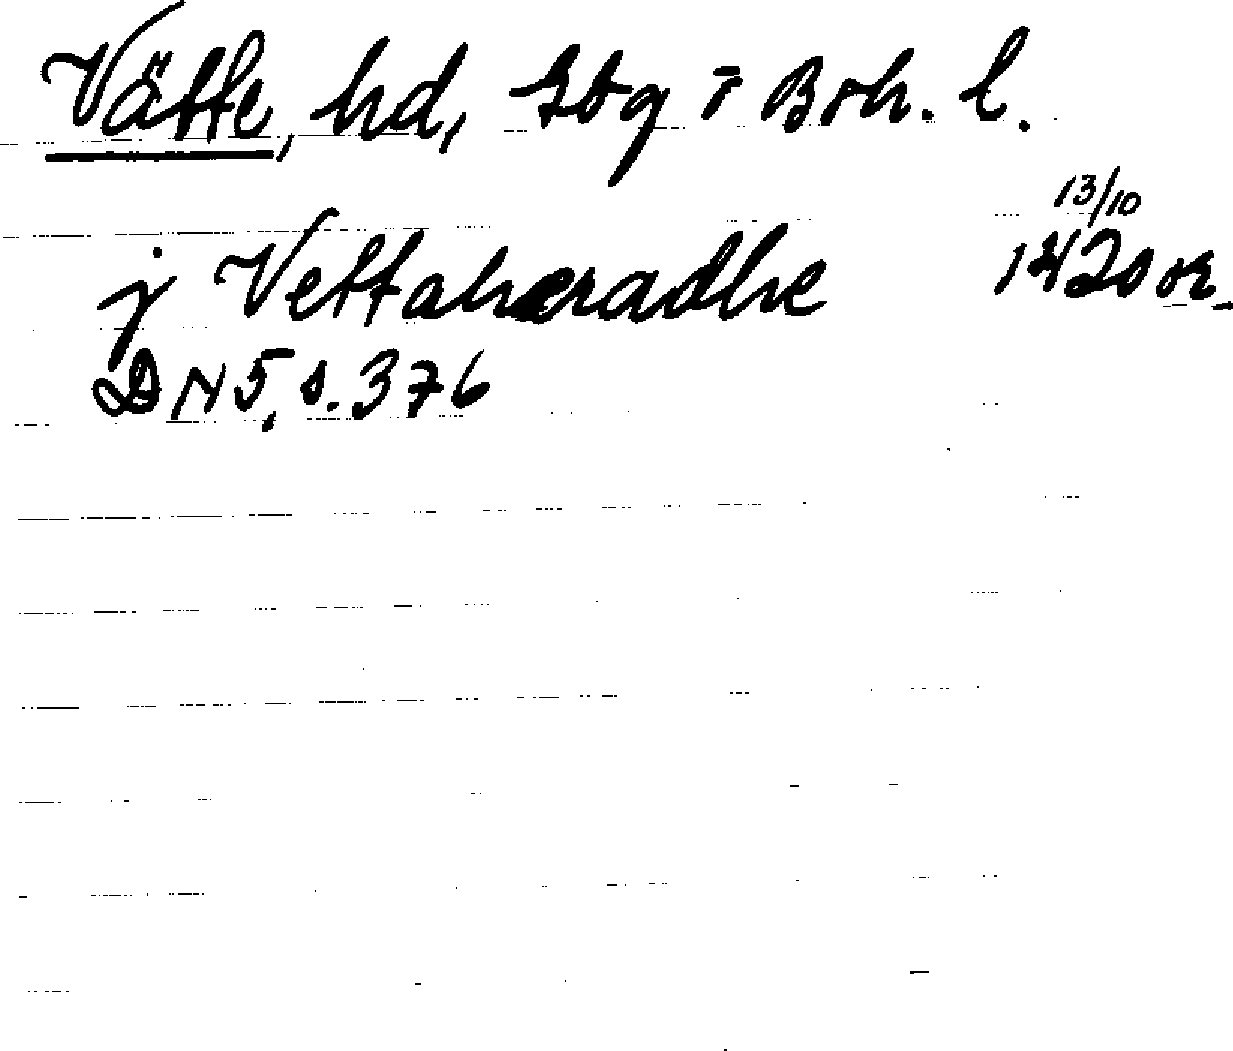 Vätte, hd, Gbg o Boh. l.
13/10
j Vettahæradhe 1420 or.
DN 5, s. 376